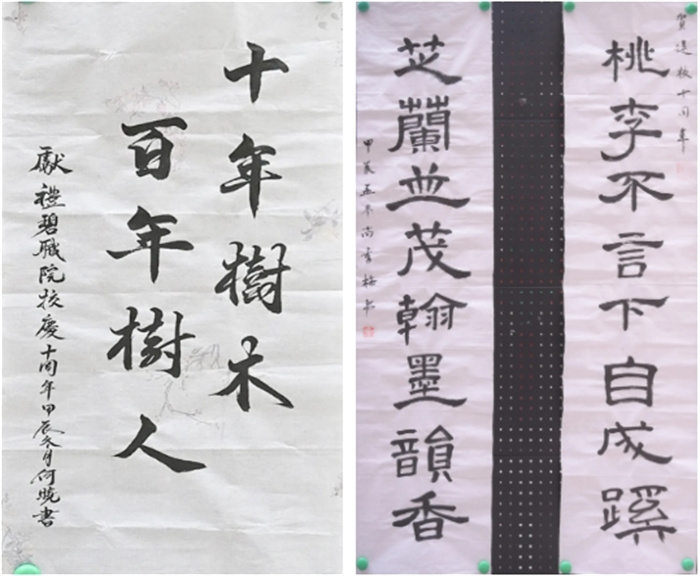 十年樹木
百年樹人
獻禮碧職院校慶十周年甲辰冬月何曉書
賀建校十周年
桃李不言下自成蹊
芝蘭並茂翰墨韻香
甲辰孟冬尚秀梅书